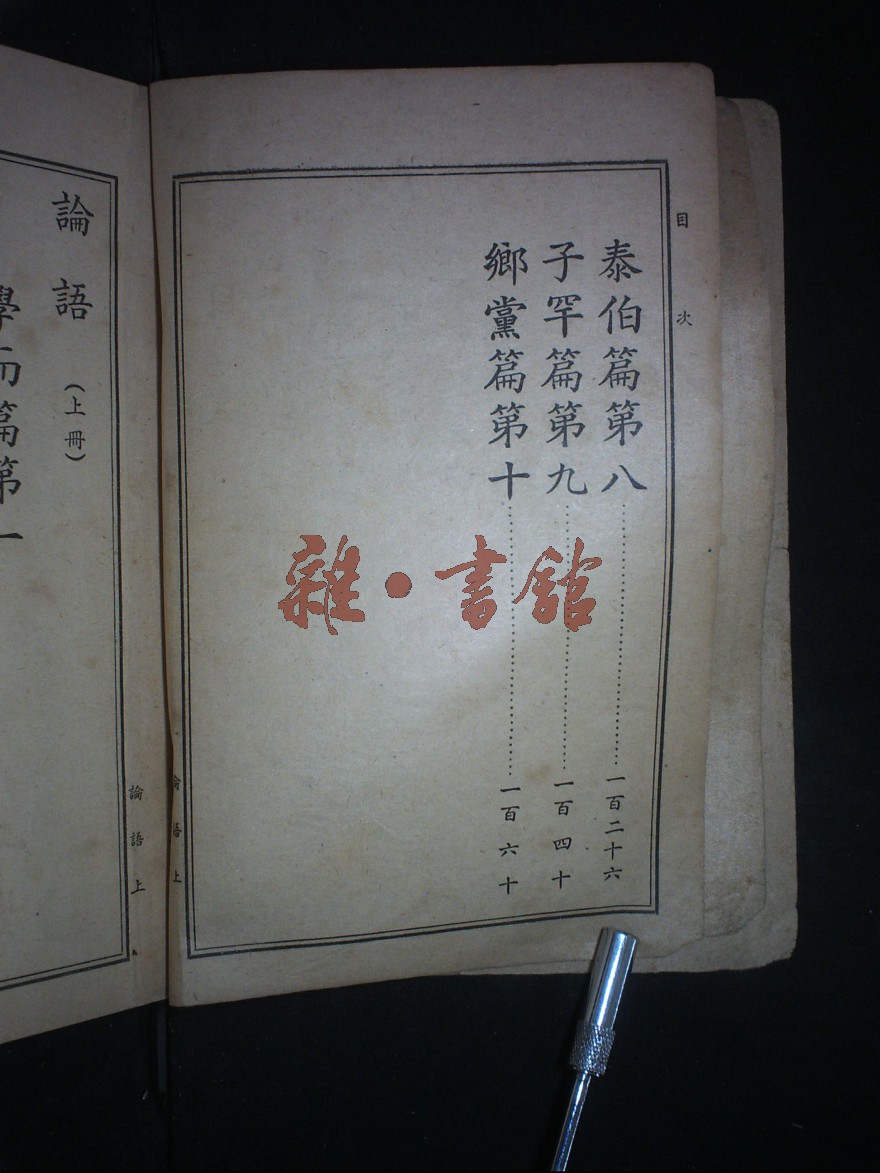 目次
泰伯篇第八……一百二十六
子罕篇第九……一百四十
鄉黨篇第十……一百六十
論語上
雜·書館
論語（上冊）
學而篇第一
論語上